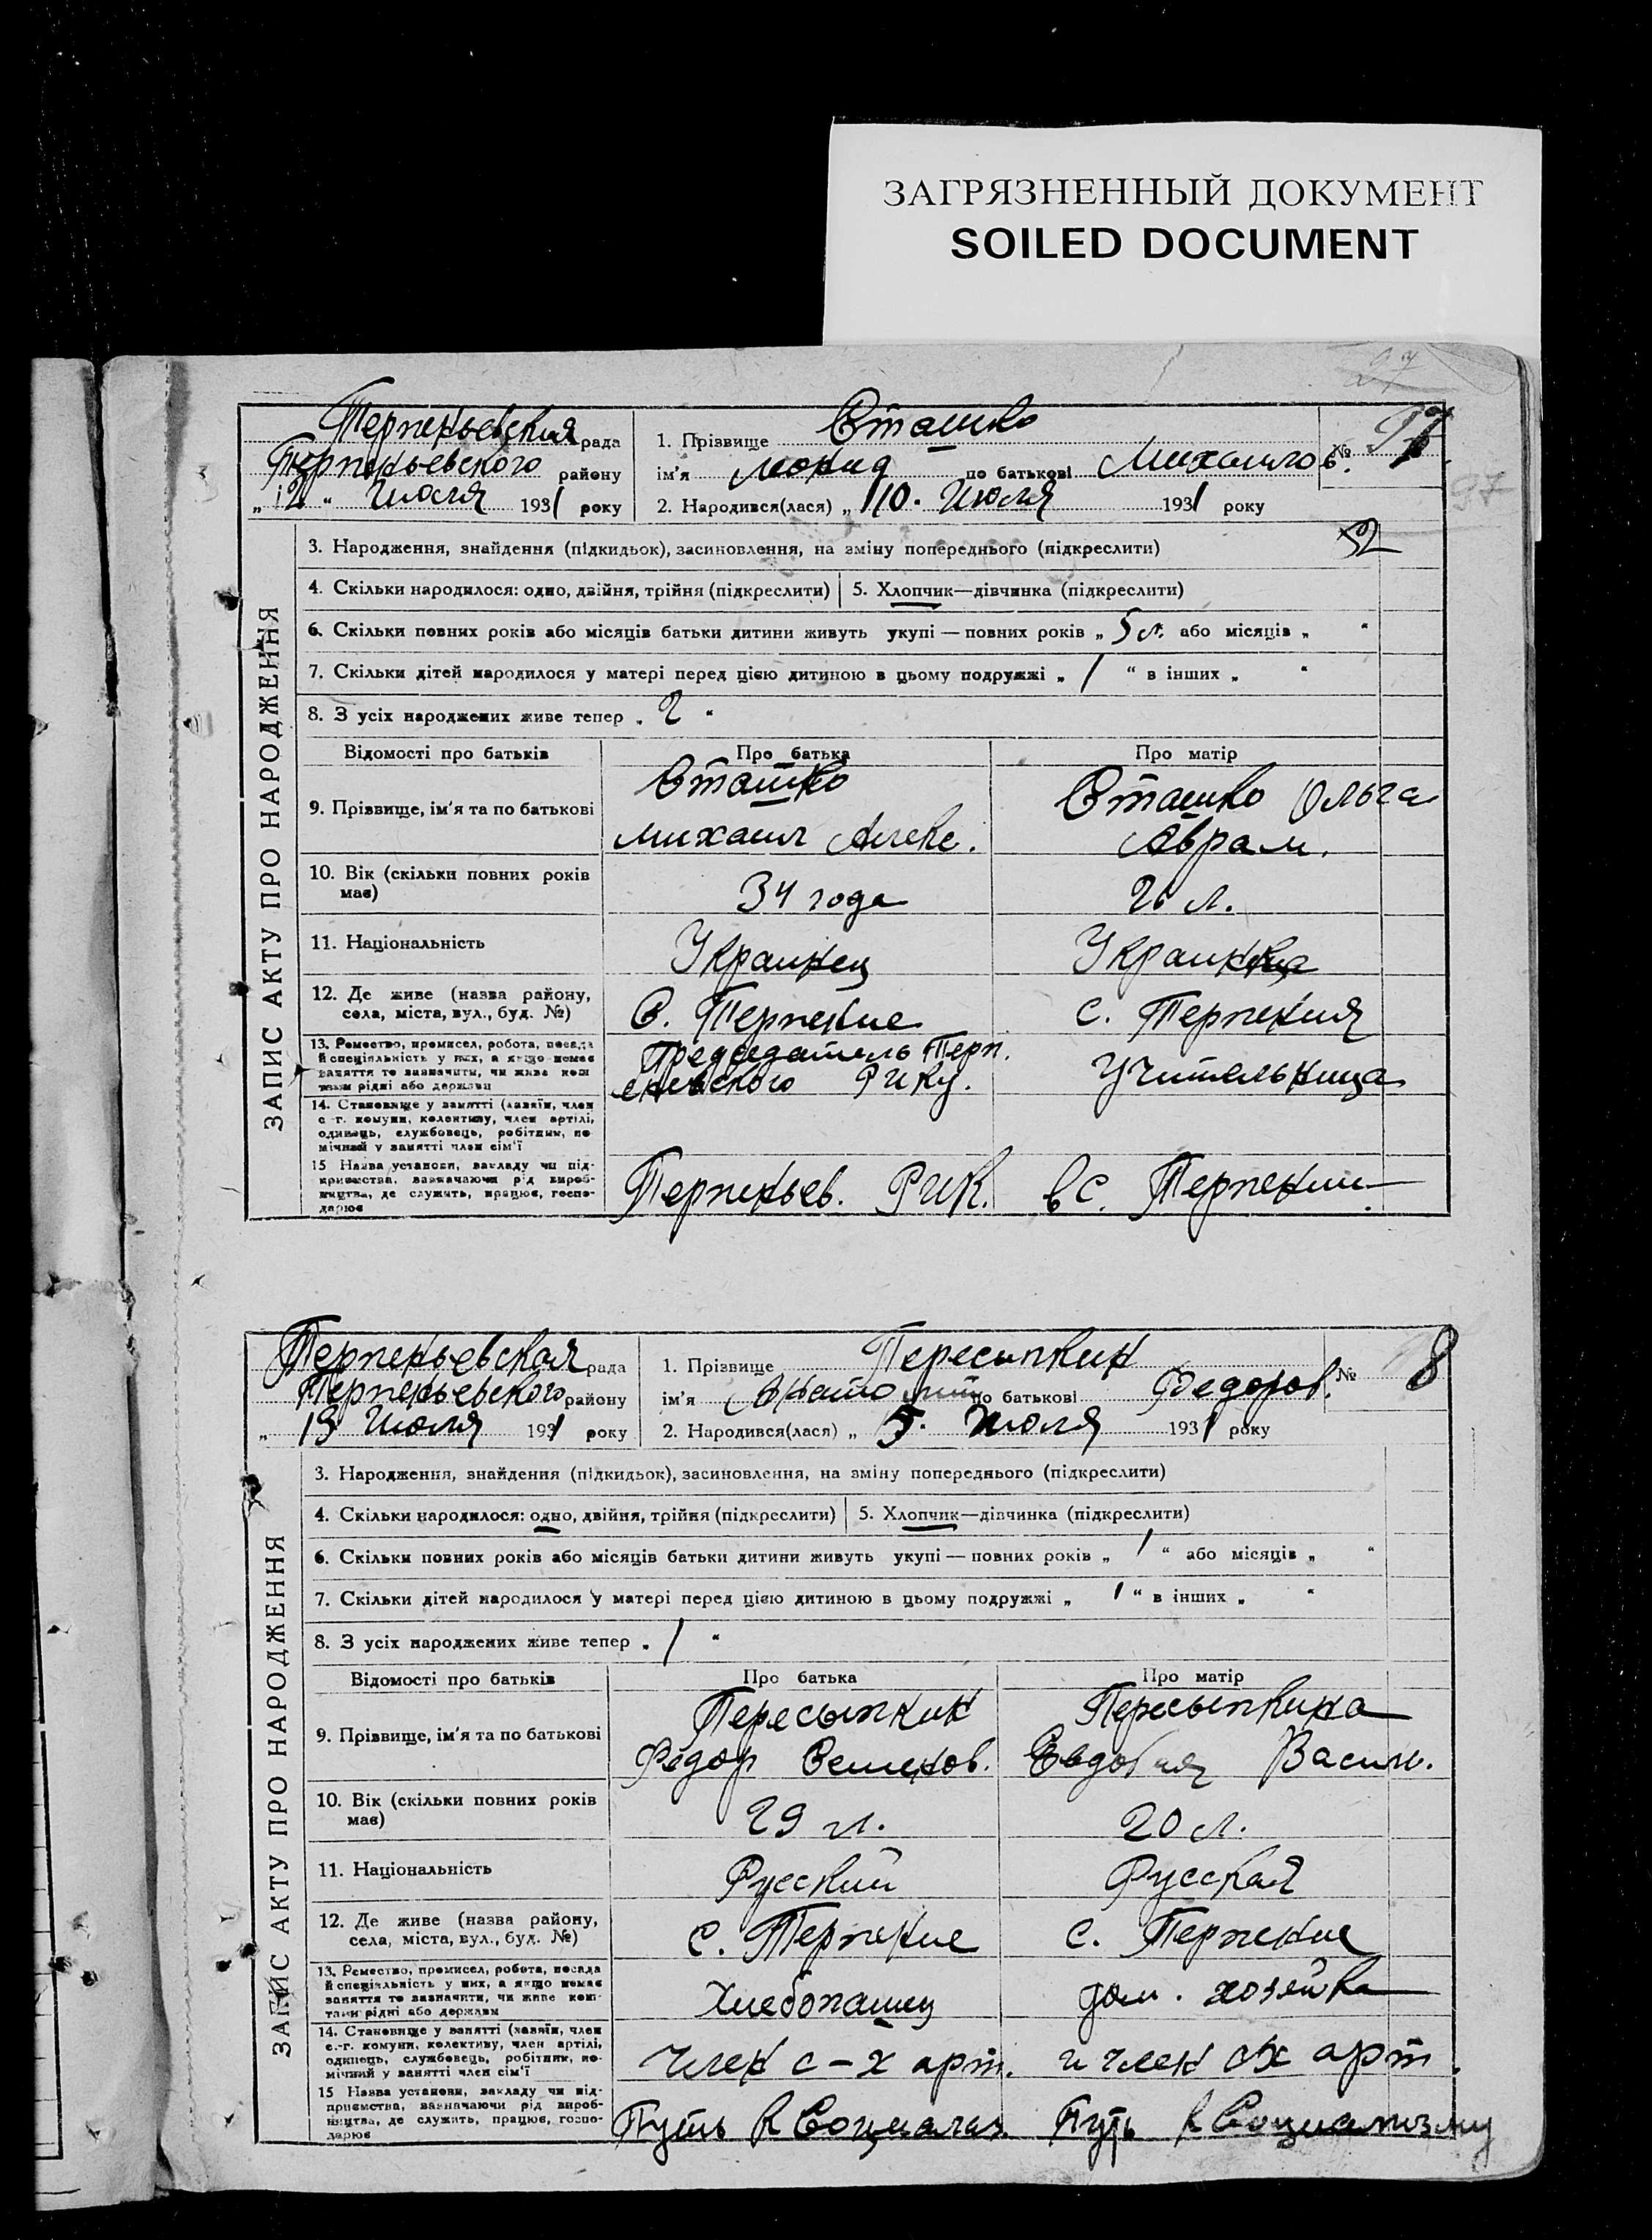 ЗАГРЯЗНЕННЫЙ ДОКУМЕНТ
SOILED DOCUMENT
Терпеньевская рада
Терпеньевского району
„12“ Июля 1931 року
1. Прізвище Сташко
ім'я Леонид по батькові Михайлов. №
2. Народився(лася) „10. Июля 1931 року
ЗАПИС АКТУ ПРО НАРОДЖЕННЯ
3. Народження, знайдення (підкидьок), засиновлення, на зміну попереднього (підкреслити)
4. Скільки народилося: одно, двійня, трійня (підкреслити) 5. Хлопчик—дівчинка (підкреслити)
6. Скільки повних років або місяців батьки дитини живуть укупі — повних років „ 5 л. або місяців „ “
7. Скільки дітей народилося у матері перед цією дитиною в цьому подружжі „ 1 “ в інших „ “
8. З усіх народжених живе тепер „ 2 “
Відомості про батьків Про батька Про матір
9. Прізвище, ім'я та по батькові
Сташко
Михаил Алекс.
Сташко Ольга
Аврам.
10. Вік (скільки повних років має) 34 года 26 л.
11. Національність Украинец Украинка
12. Де живе (назва району, села, міста, вул., буд. №) С. Терпение с. Терпения
13. Ремество, промисел, робота, посада й спеціяльність у них, а якщо немає заняття то зазначити, чи живе коштами рідні або держави
Председатель Терп.
еньевского Рику.
Учительница
14. Становище у занятті (хазяїн, член с.-г. комуни, колективу, член артілі, одинець, службовець, робітник, помічний у занятті член сім'ї
15 Назва установи, закладу чи підприємства, зазначаючи рід виробництва, де служить, працює, господарює
Терпеньев. Рик. в с. Терпении
Терпеньевская рада
Терпеньевского району
„ 13 Июля 1931 року
1. Прізвище Пересыпкин
ім'я Анатолий по батькові Федоров. № 8
2. Народився(лася) „ 5. Июля 1931 року
ЗАПИС АКТУ ПРО НАРОДЖЕННЯ
3. Народження, знайдення (підкидьок), засиновлення, на зміну попереднього (підкреслити)
4. Скільки народилося: одно, двійня, трійня (підкреслити) 5. Хлопчик—дівчинка (підкреслити)
6. Скільки повних років або місяців батьки дитини живуть укупі — повних років „ 1 “ або місяців „ “
7. Скільки дітей народилося у матері перед цією дитиною в цьому подружжі „ 1 “ в інших „ “
8. З усіх народжених живе тепер „ 1 “
Відомості про батьків Про батька Про матір
9. Прізвище, ім'я та по батькові
Пересыпкин
Федор Семенов.
Пересыпкина
Евдокия Васил.
10. Вік (скільки повних років має) 29 л. 20 л.
11. Національність Русский Русская
12. Де живе (назва району, села, міста, вул., буд. №) с. Терпение с. Терпение
13. Ремество, промисел, робота, посада й спеціяльність у них, а якщо немає заняття то зазначити, чи живе коштами рідні або держави
Хлебопашец дом. хозяйка
14. Становище у занятті (хазяїн, член с.-г. комуни, колективу, член артілі, одинець, службовець, робітник, помічний у занятті член сім'ї
член с-х арт. и член сх арт.
15 Назва установи, закладу чи підприємства, зазначаючи рід виробництва, де служить, працює, господарює
Путь к Социализ. Путь к Социализму